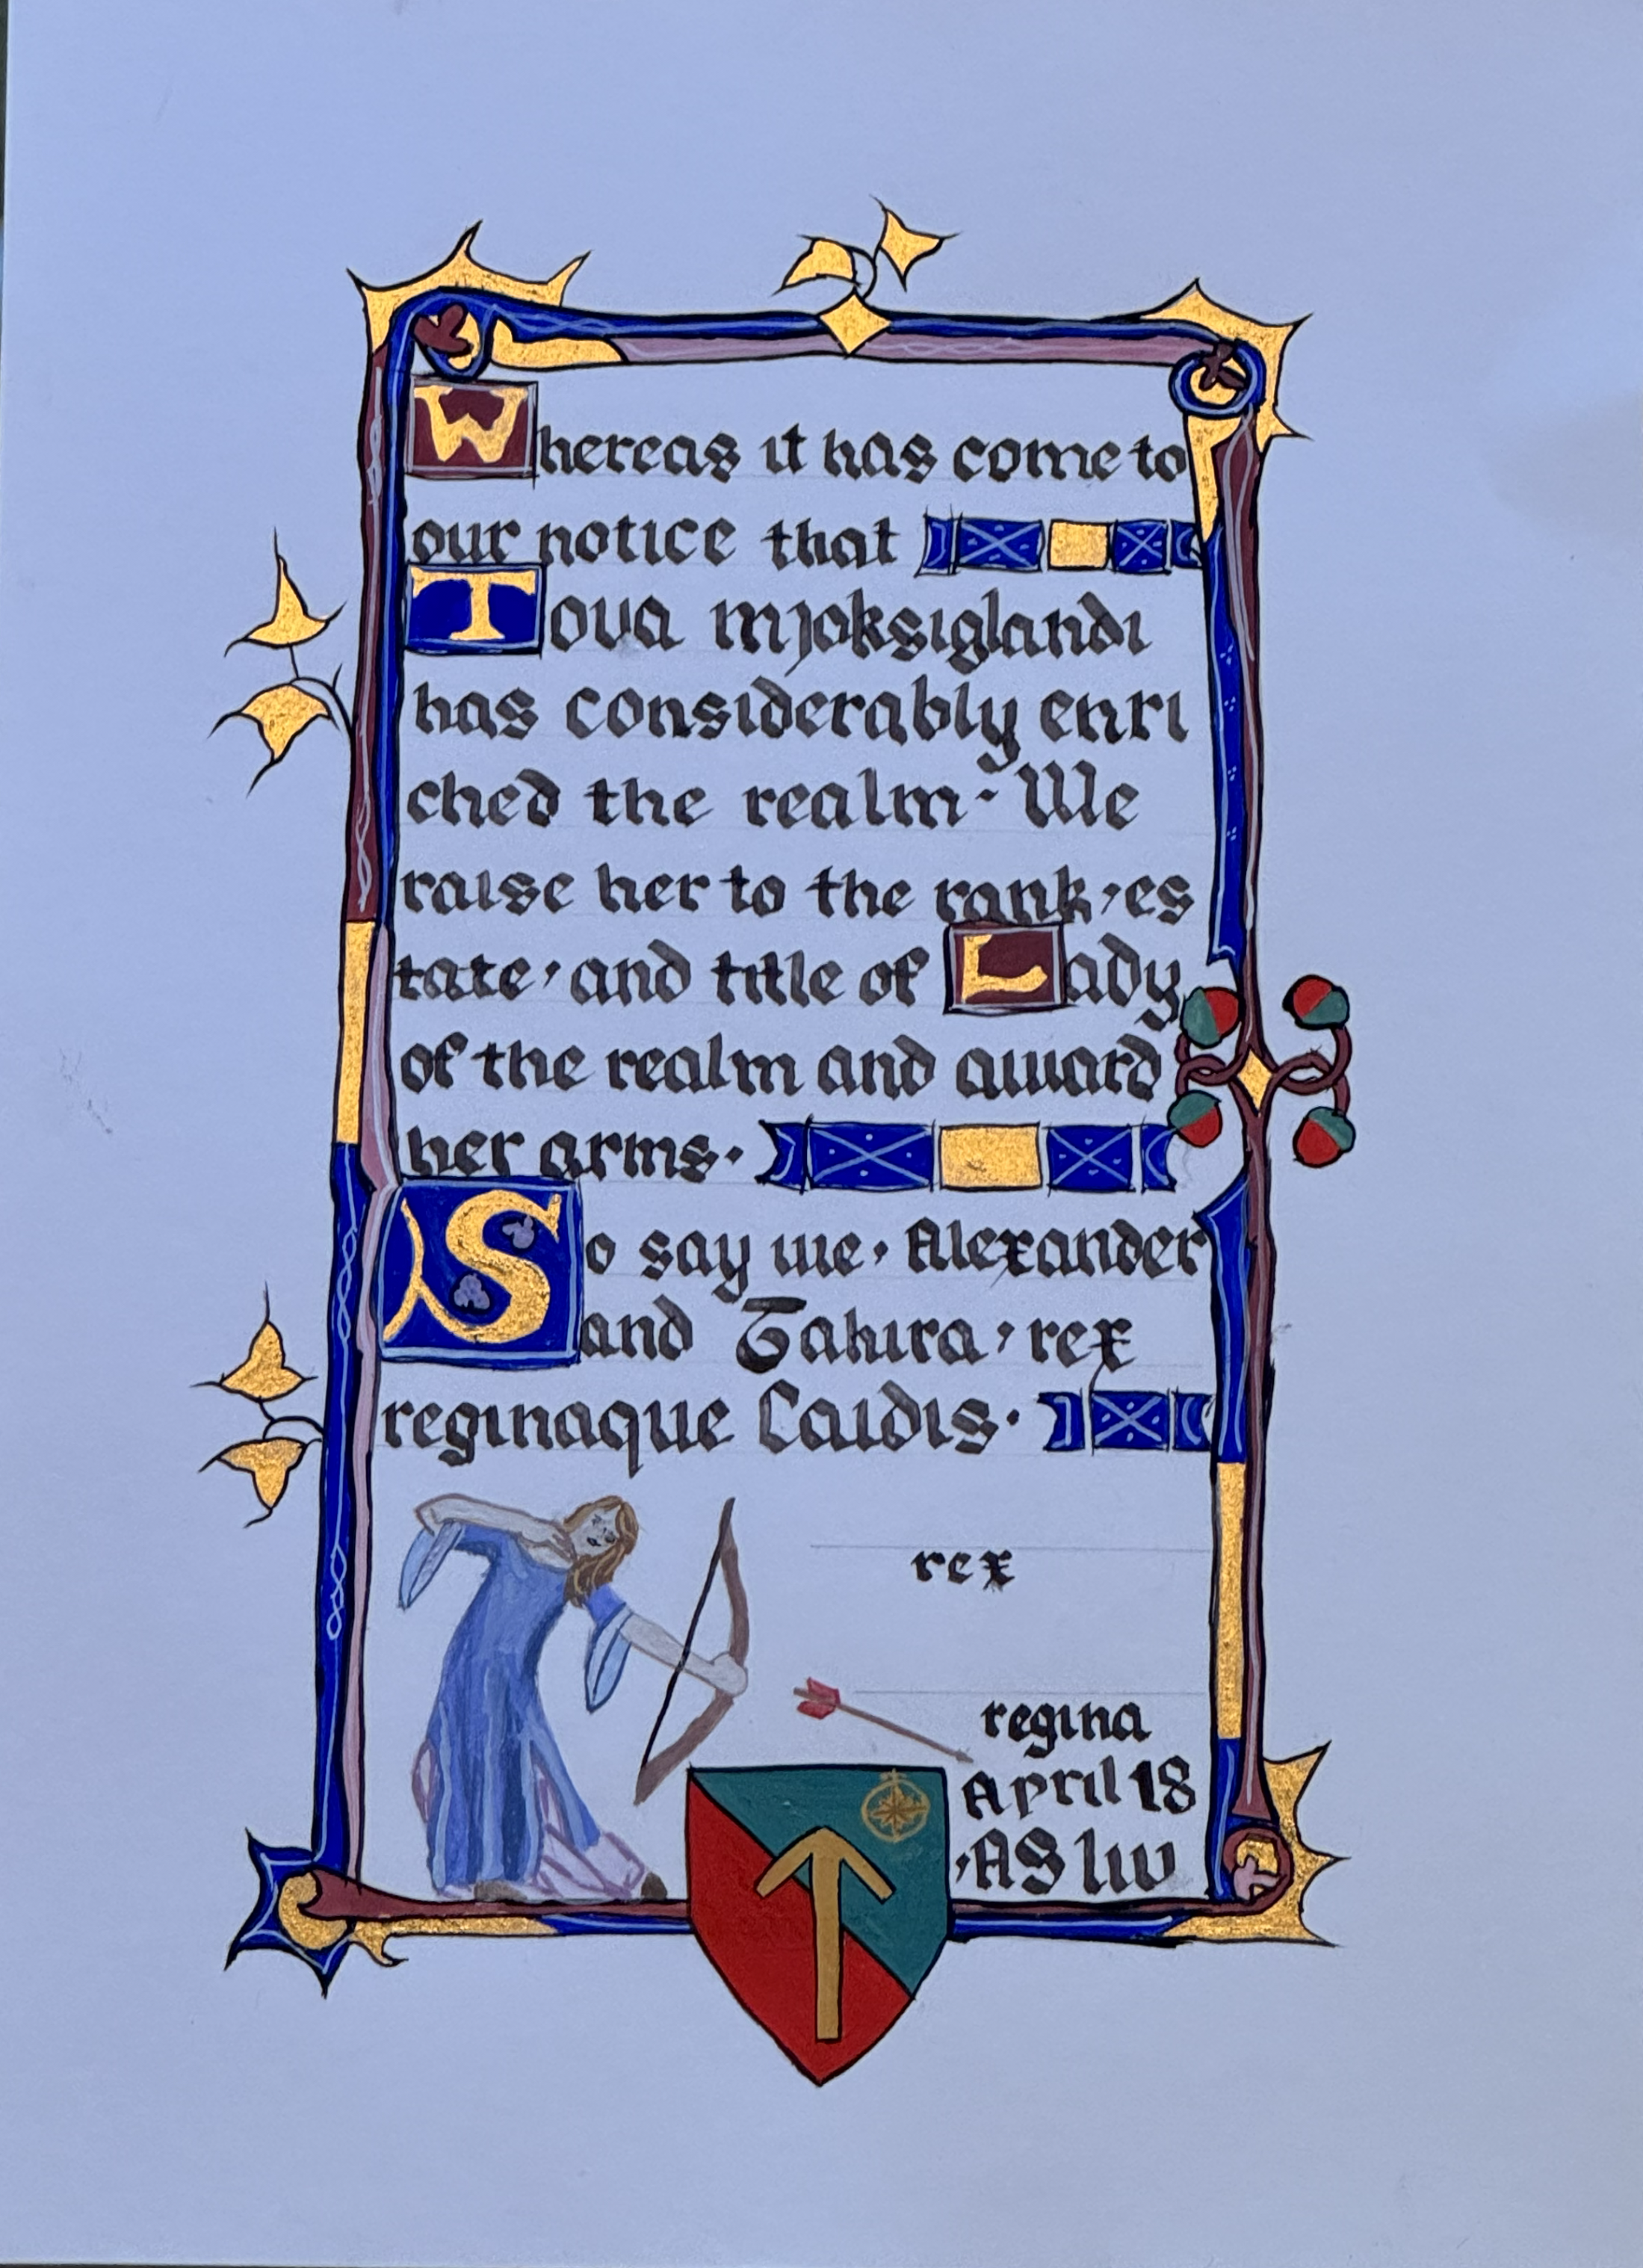 Whereas it has come to
our notice that
Tova mjoksiglandi
has considerably enri
ched the realm · We
raise her to the rank, es
tate, and title of Lady
of the realm and award
her arms.
So say we, Alexander
and Tahira, rex
reginaque Caidis.
rex
regina
April 18
, AS liv